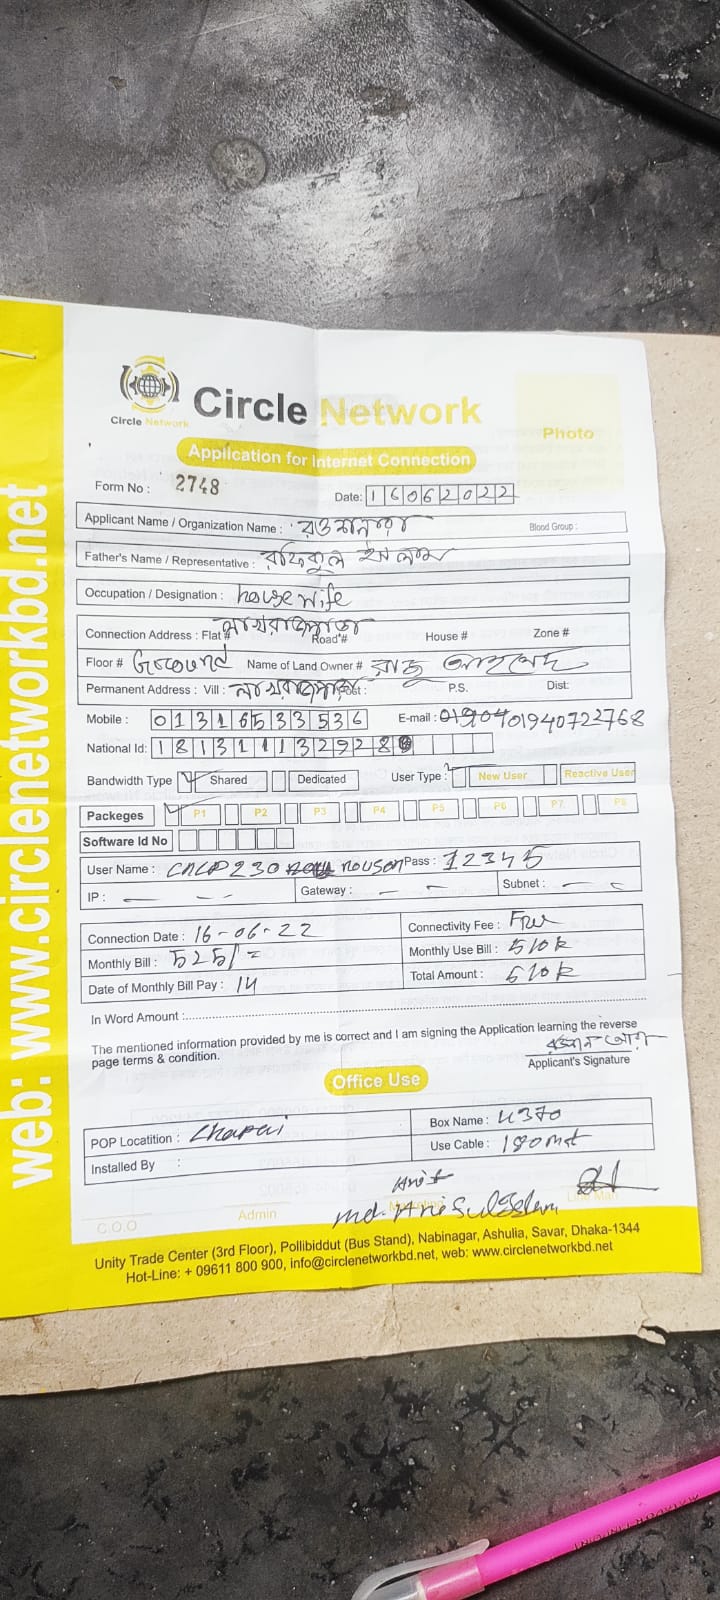 Circle Network
Circle Network
Photo
Application for Internet Connection
Form No : 2748
Date: 16062022
Applicant Name / Organization Name : রওশনারা
Blood Group :
Father's Name / Representative : রফিকুল ইসলাম
Occupation / Designation : house wife
Connection Address : Flat # Road # House # Zone #
Floor # Ground Name of Land Owner # রাজু আহমেদ
Permanent Address : Vill : P.S. Dist:
Mobile : 01316533536 E-mail : 01940722768
National Id:
Bandwidth Type Shared Dedicated User Type : New User Reactive User
Packeges P1 P2 P3 P4 P5 P6 P7 P8
Software Id No
User Name : Pass : 12345
IP : — -- Gateway : — - Subnet : — -
Connection Date : 16-06-22 Connectivity Fee : Free
Monthly Bill : 525/= Monthly Use Bill : 510
Date of Monthly Bill Pay : 14 Total Amount : 510
In Word Amount :
The mentioned information provided by me is correct and I am signing the Application learning the reverse
page terms & condition.
Applicant's Signature
Office Use
POP Locatition : Chapai Box Name : 4370
Installed By : Use Cable : 180 mt
C.O.O Admin
Unity Trade Center (3rd Floor), Pollibiddut (Bus Stand), Nabinagar, Ashulia, Savar, Dhaka-1344
Hot-Line: + 09611 800 900, info@circlenetworkbd.net, web: www.circlenetworkbd.net
web: www.circlenetworkbd.net